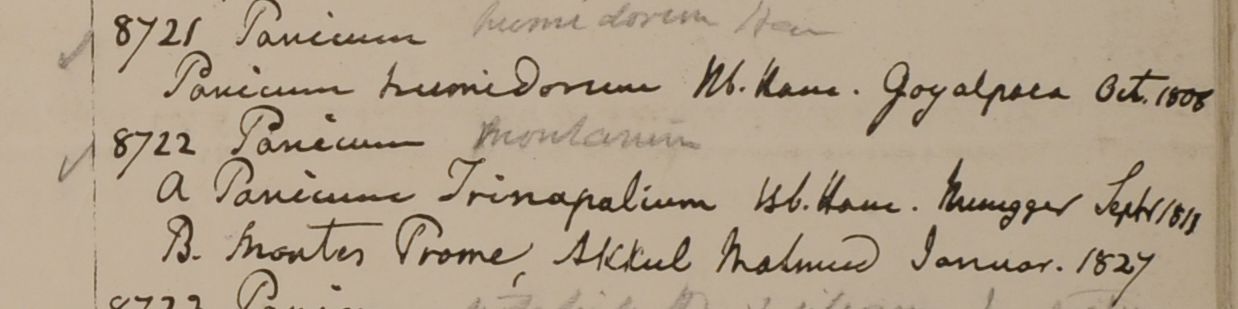 8721 Panicum humidorum Ham
Panicum humidorum Hb. Ham. Goyalpara Oct. 1808
8722 Panicum montanum
A Panicum Trinapalium Hb. Ham. Mungger Septr 1811
B. Montes Prome, Akkul Mahmud Januar. 1827
Panicum